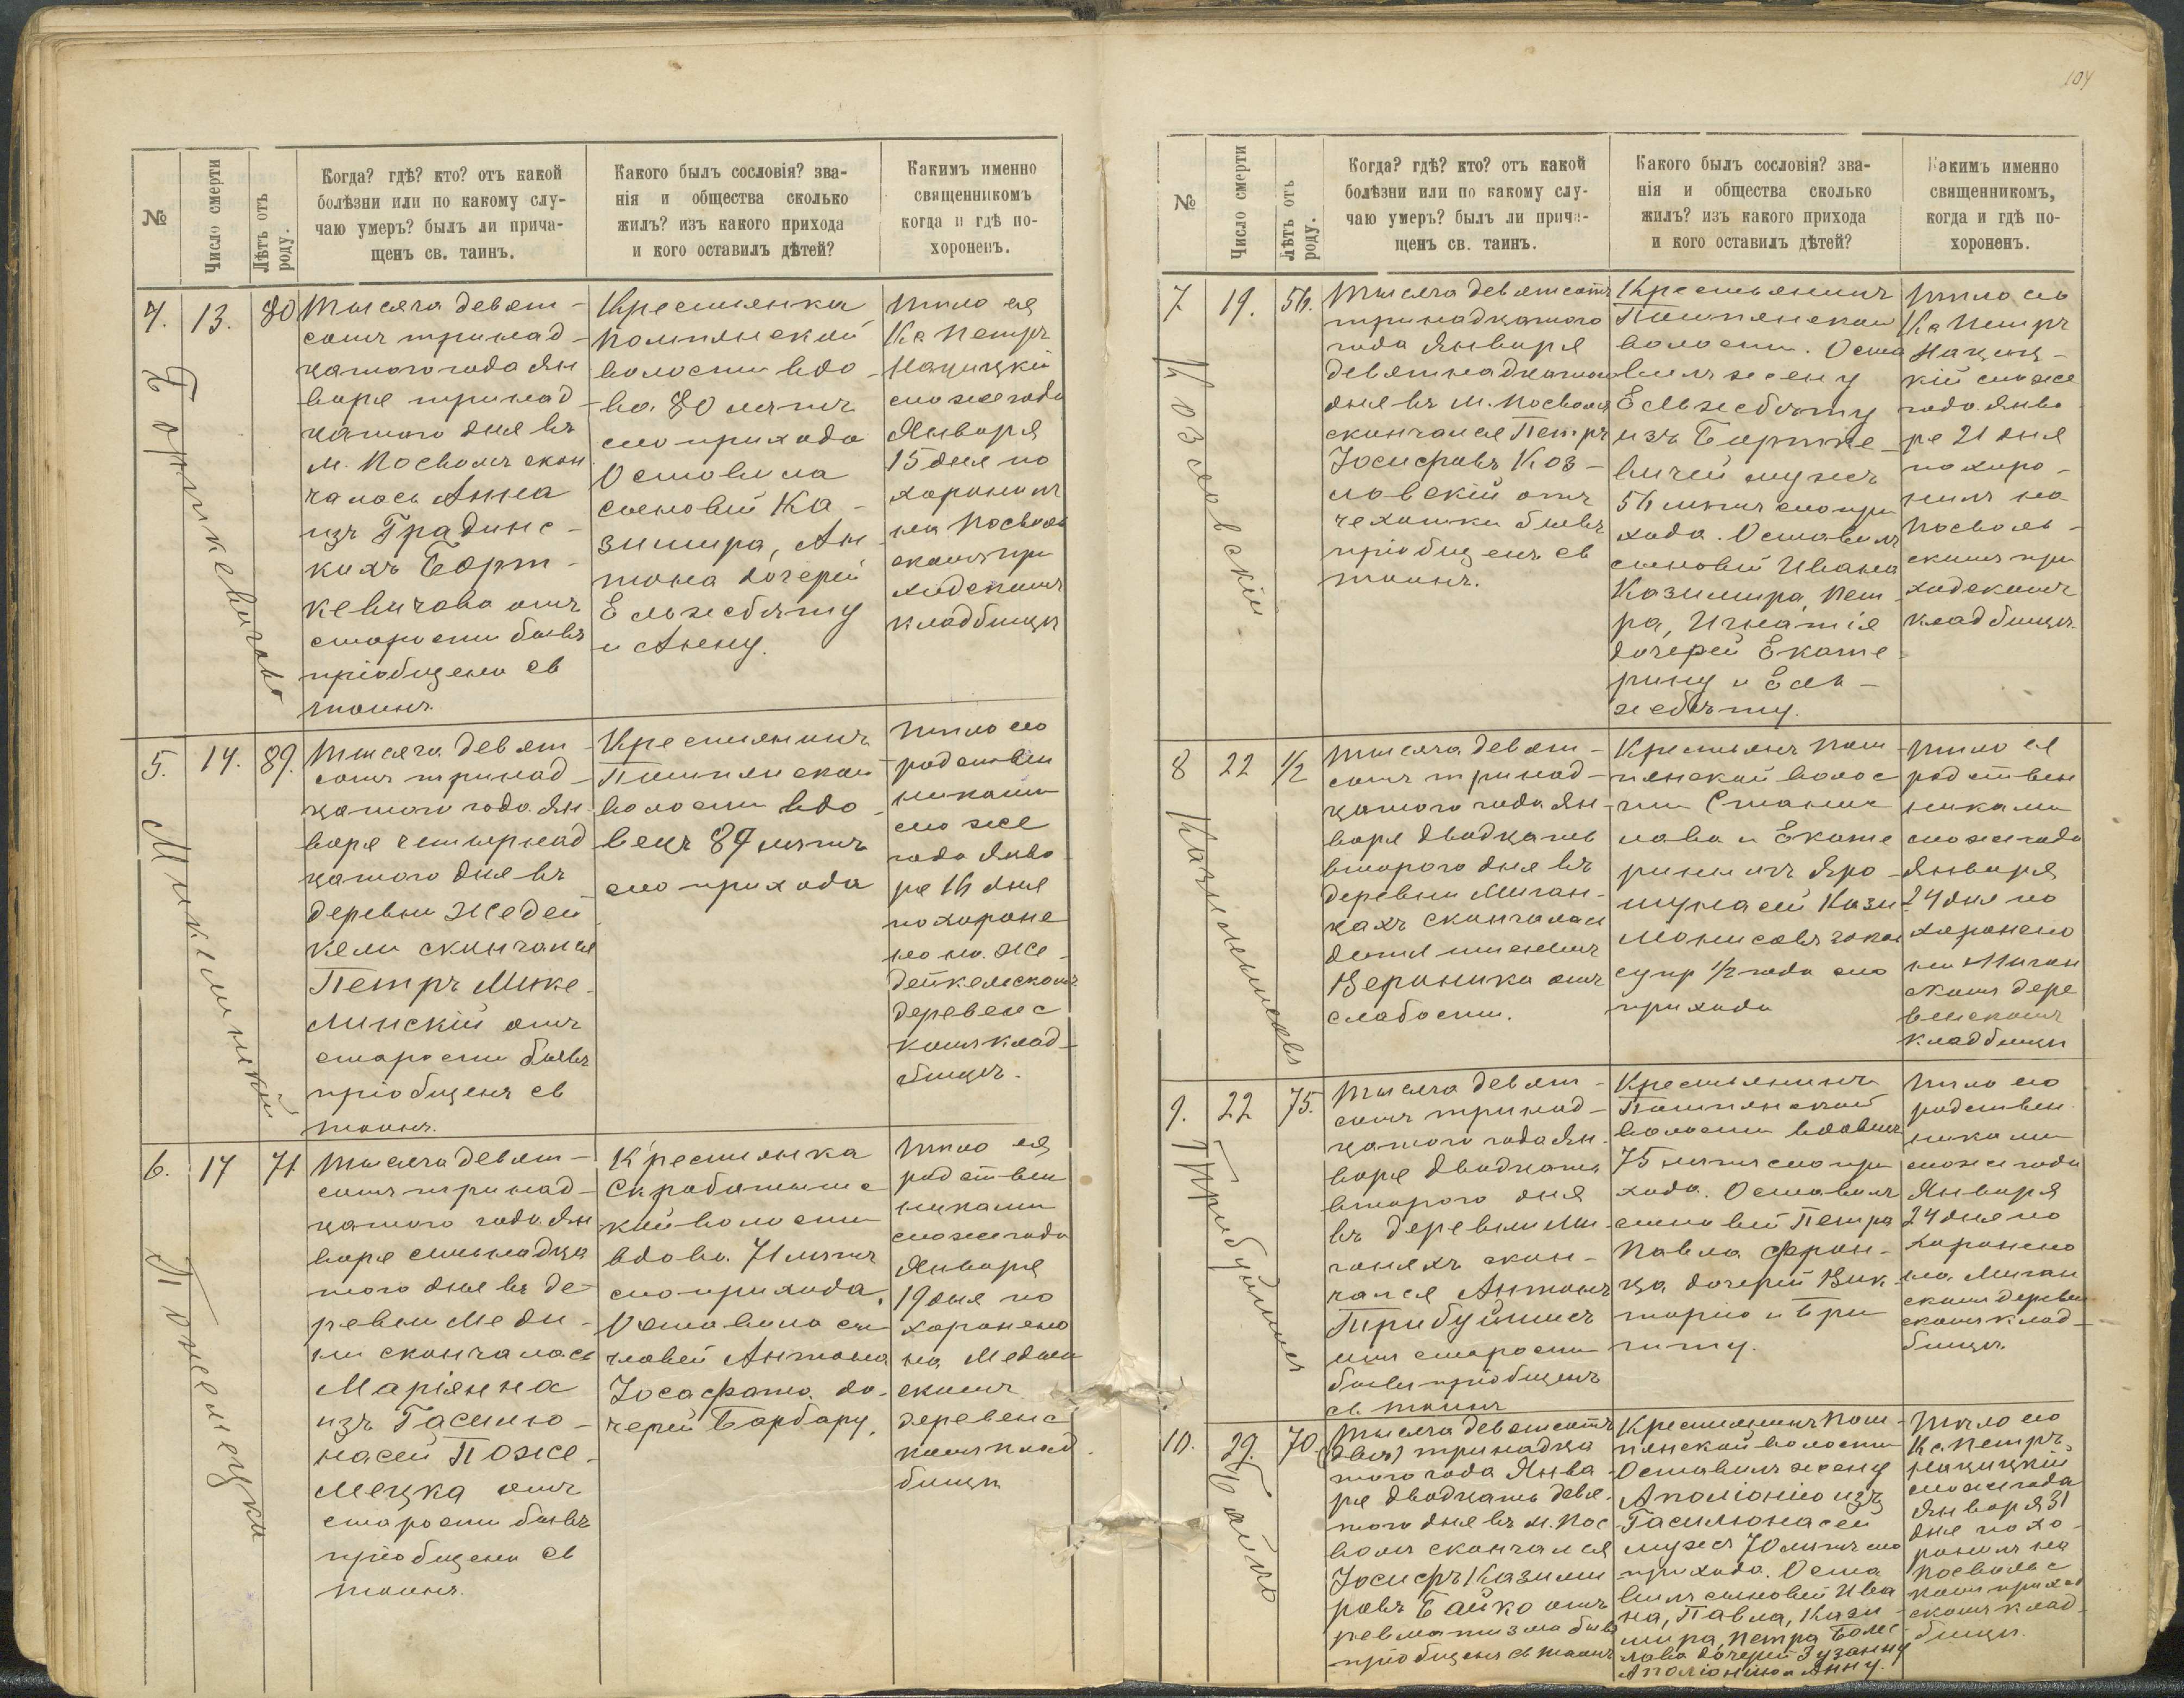 104
№
Число смерти
Лѣтъ отъ
роду.
Когда? гдѣ? кто? отъ какой
болѣзни или по какому слу-
чаю умеръ? былъ ли прича-
щенъ св. таинъ.
Какого былъ сословія? зва-
нія и общества сколько
жилъ? изъ какого прихода
и кого оставилъ дѣтей?
Какимъ именно
священникомъ
когда и гдѣ по-
хороненъ.
4.
13.
80
Борткевичова
Тысяча девят-
сотъ тринад-
цатого года Ян
варя тринад-
цатого дня въ
м. Посволь скон
чалась Анна
изъ Градинс-
кихъ Борт-
кевичова отъ
старости бывъ
пріобщена св
таинъ.
Крестьянка
Помпянской
волости вдо-
ва. 80 лѣтъ
сго прихода
Оставила
сыновей Ка-
зимира, Ан-
тона дочерей
Ельжебѣту
и Анну.
Тѣло ея
Кс Петръ
Нацицкій
сгоже года
Января
15 дня по
хоронилъ
на Посволь
скомъ при
ходскомъ
кладбищѣ
5.
14.
89.
Микшинскій
Тысяча девят-
сотъ тринад-
цатого года. Ян-
варя четырнад
цатого дня въ
деревни Жедей
кели скончался
Петръ Мике-
линскій отъ
старости бывъ
пріобщенъ св
таинъ.
Крестьянинъ
Помпянской
волости вдо-
вецъ 89 лѣтъ
сго прихода
Тѣло его
родствен
никами
сго же
года Янва
ря 16 дня
похороне
но на. Же-
дейкельскомъ
деревенс
комъ клад-
бищѣ.
6.
17
71
Пожелнецка
Тысяча девят-
сотъ тринад-
цатого года. Ян
варя семнадца
того дня въ де-
ревни Меди-
ни скончалась
Маріянна
изъ Гасилю-
насей Поже-
мецка отъ
старости бывъ
пріобщена св
таинъ.
Крестьянка
Скработишс
кой волости
вдова. 71 лѣтъ
сго прихода.
Оставила сы
новей Антона
Іосафата. до-
черей Барбару.
Тѣло ея
родствен
никами
сгоже года
Января
19 дня по
хоронено
на Медин
скомъ
деревенс
комъ клад
бищѣ
№
Число смерти
Лѣтъ отъ
роду.
Когда? гдѣ? кто? отъ какой
болѣзни или по какому слу-
чаю умеръ? былъ ли прича-
щенъ св. таинъ.
Какого былъ сословія? зва-
нія и общества сколько
жилъ? изъ какого прихода
и кого оставилъ дѣтей?
Какимъ именно
священникомъ,
когда и гдѣ по-
хороненъ.
7
19.
56.
Козловскій
Тысяча девятсотъ
тринадцатого
года Января
девятнадцатого
дня въ м. Посволь
скончался Петръ
Іосифовъ Коз-
ловскій отъ
чехотки бывъ
пріобщенъ св
таинъ.
Крестьянинъ
Помпянской
волости. Оста
вилъ жену
Ельжебѣту
изъ Бортке-
вичей мужъ
56 лѣтъ сго при
хода. Оставилъ
сыновей Ивана
Казимира, Пет
ра, Игнатія
дочерей Екате
рину и Ель-
жебѣту.
Тѣло его
Кс Петръ
Нациц-
кій сгоже
года. Янва
ря 21 дня
похоро-
нилъ на
Посволь-
скомъ при
ходскомъ
кладбищѣ.
8
22
1/2
Тысяча девят-
сотъ тринад-
цатого года Ян-
варя двадцать
второго дня въ
деревни Миган-
цахъ скончалась
дитя именемъ
Вероника отъ
слабости.
Крестьянъ Пом
пянской волос
ти Станис
лава и Екате
рины изъ Яро-
шунасей Кази
монисовъ закон
супр 1/2 года сго
прихода
Тѣло ея
родствен
никами
сгоже года
Января
24 дня по
хоронено
на Миган
скомъ дере
венскомъ
кладбищѣ
9.
22
75.
Трибуйшисъ
Тысяча девят-
сотъ тринад-
цатого года Ян-
варя двадцать
второго дня
въ деревни Ми-
ганяхъ скон-
чался Антонъ
Трибуйшисъ
отъ старости
бывъ пріобщенъ
св. таинъ
Крестьянинъ
Помпянской
волости вдовецъ
75 лѣтъ сго при
хода. Оставилъ
сыновей Петра
Павла Фран-
ца дочерей Вик
торію и Бри
гиту.
Тѣло его
родствен
никами
сгоже года
Января
24 дня по
хоронено
на. Миган
скомъ деревен
скомъ клад-
бищѣ.
10.
29.
70.
Байко
Тысяча девятсотъ
тринадца
того года Янва
ря двадцать девя-
того дня въ м. Пос
воль скончался
Іосифъ Казими
ровъ Байко отъ
ревматизма бывъ
пріобщенъ св таинъ
Крестьянинъ Пом
пянской волости
Оставилъ жену
Аполіонію изъ
Гасилюнасей
мужъ 70 лѣтъ сго
прихода. Оста
вилъ сыновей Ива
на, Павла, Кази
мира, Петра Болес
лава дочерей Зузанну
Аполіонію и Анну.
Тѣло его
Кс. Петръ
Нацицкій
сгоже года
Января 31
дня похо-
ронилъ на
Посвольс
комъ приход
скомъ клад-
бищѣ.